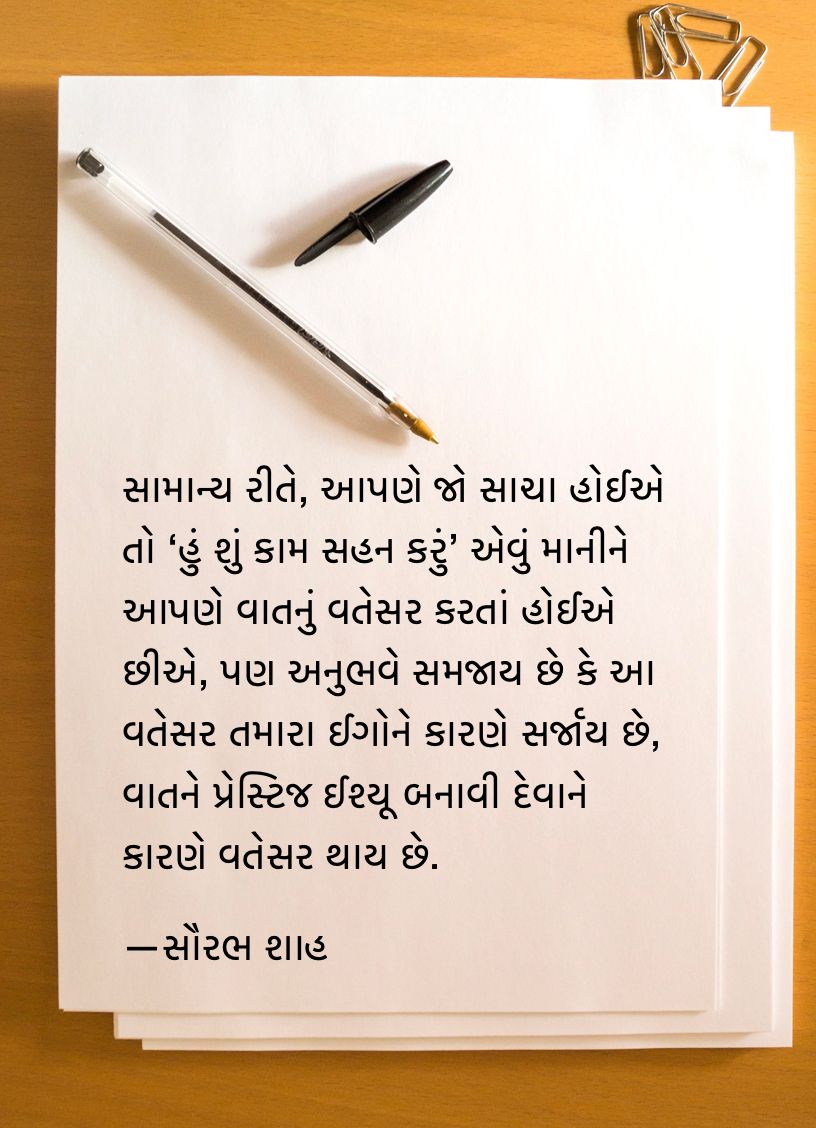 સામાન્ય રીતે, આપણે જો સાચા હોઈએ
તો ‘હું શું કામ સહન કરું’ એવું માનીને
આપણે વાતનું વતેસર કરતાં હોઈએ
છીએ, પણ અનુભવે સમજાય છે કે આ
વતેસર તમારા ઈગોને કારણે સર્જાય છે,
વાતને પ્રેસ્ટિજ ઈશ્યૂ બનાવી દેવાને
કારણે વતેસર થાય છે.
—સૌરભ શાહ